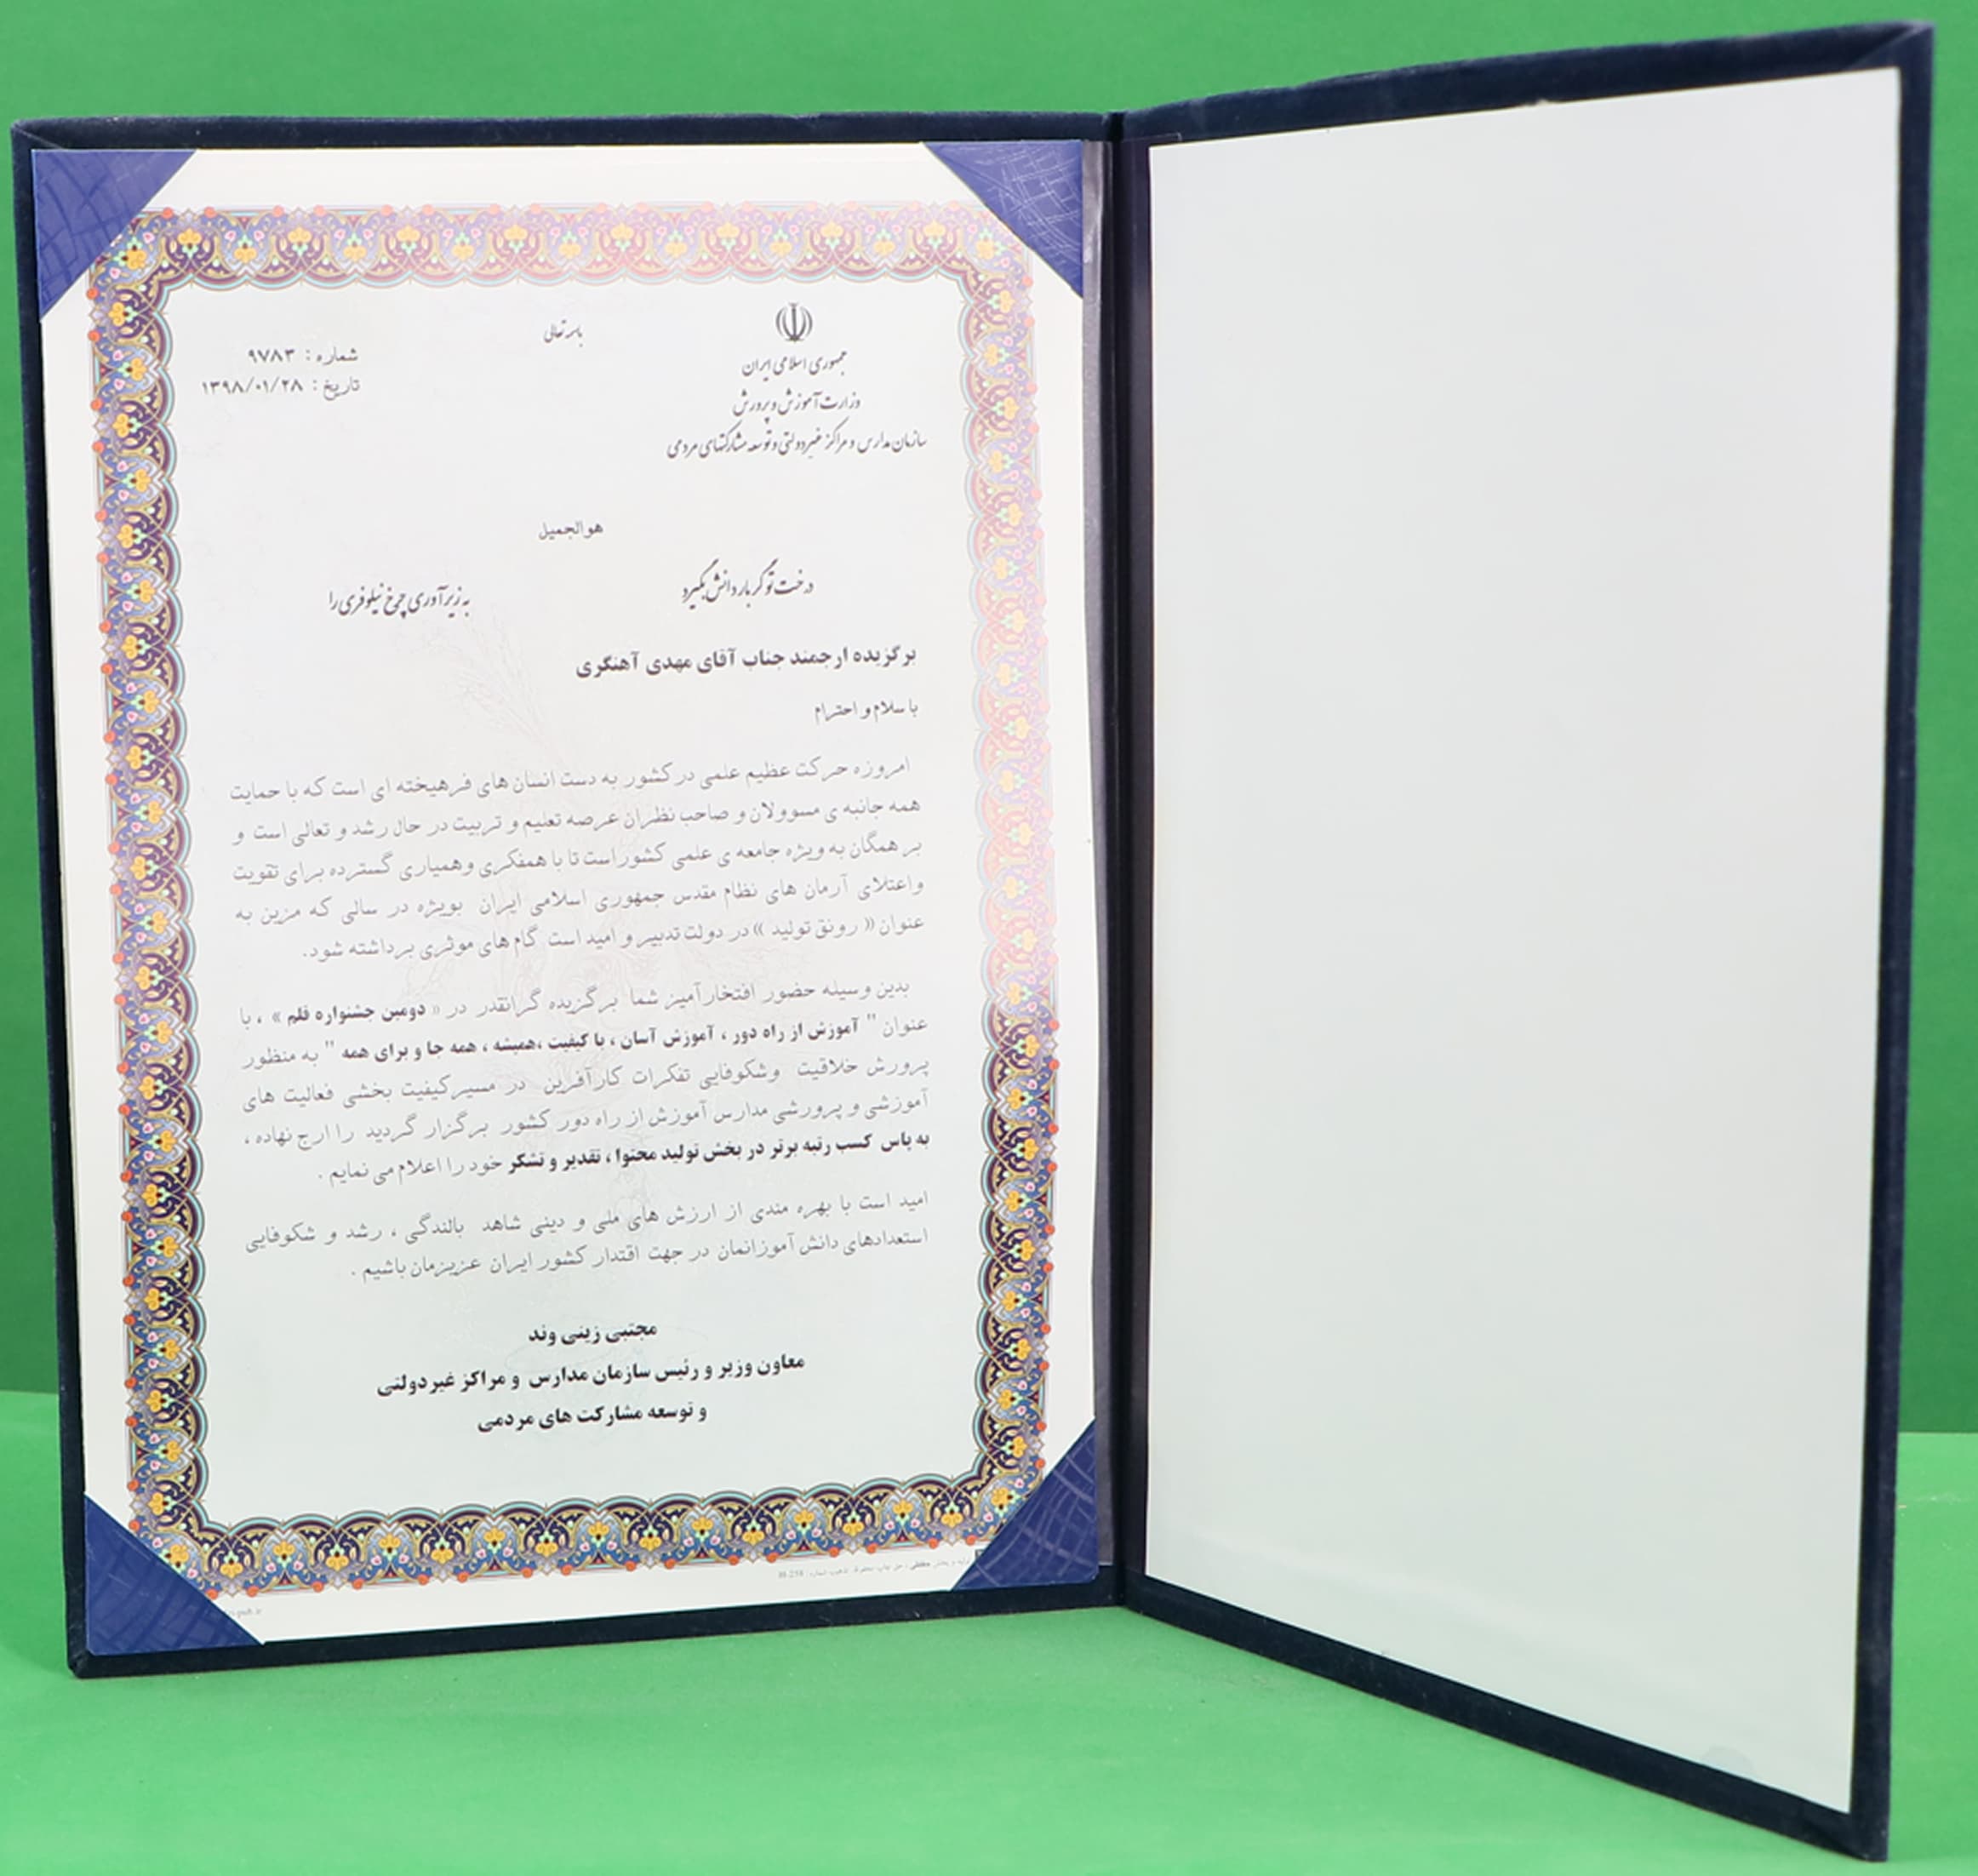 باسمه تعالی
جمهوری اسلامی ایران
وزارت آموزش و پرورش
سازمان مدارس و مراکز غیردولتی و توسعه مشارکتهای مردمی
شماره : ۹۷۸۳
تاریخ : ۱۳۹۸/۰۱/۲۸
هوالجمیل
درخت تو گر بار دانش بگیرد به زیر آوری چرخ نیلوفری را
برگزیده ارجمند جناب آقای مهدی آهنگری
با سلام و احترام
امروزه حرکت عظیم علمی در کشور به دست انسان های فرهیخته ای است که با حمایت
همه جانبه ی مسوولان و صاحب نظران عرصه تعلیم و تربیت در حال رشد و تعالی است و
بر همگان به ویژه جامعه ی علمی کشور است تا با همفکری وهمیاری گسترده برای تقویت
واعتلای آرمان های نظام مقدس جمهوری اسلامی ایران بویژه در سالی که مزین به
عنوان « رونق تولید » در دولت تدبیر و امید است گام های موثری برداشته شود.
بدین وسیله حضور افتخارآمیز شما برگزیده گرانقدر در « دومین جشنواره قلم » ، با
عنوان " آموزش از راه دور ، آموزش آسان ، با کیفیت ،همیشه ، همه جا و برای همه " به منظور
پرورش خلاقیت وشکوفایی تفکرات کارآفرین در مسیرکیفیت بخشی فعالیت های
آموزشی و پرورشی مدارس آموزش از راه دور کشور برگزار گردید را ارج نهاده ،
به پاس کسب رتبه برتر در بخش تولید محتوا ، تقدیر و تشکر خود را اعلام می نمایم .
امید است با بهره مندی از ارزش های ملی و دینی شاهد بالندگی ، رشد و شکوفایی
استعدادهای دانش آموزانمان در جهت اقتدار کشور ایران عزیزمان باشیم .
مجتبی زینی وند
معاون وزیر و رئیس سازمان مدارس و مراکز غیردولتی
و توسعه مشارکت های مردمی